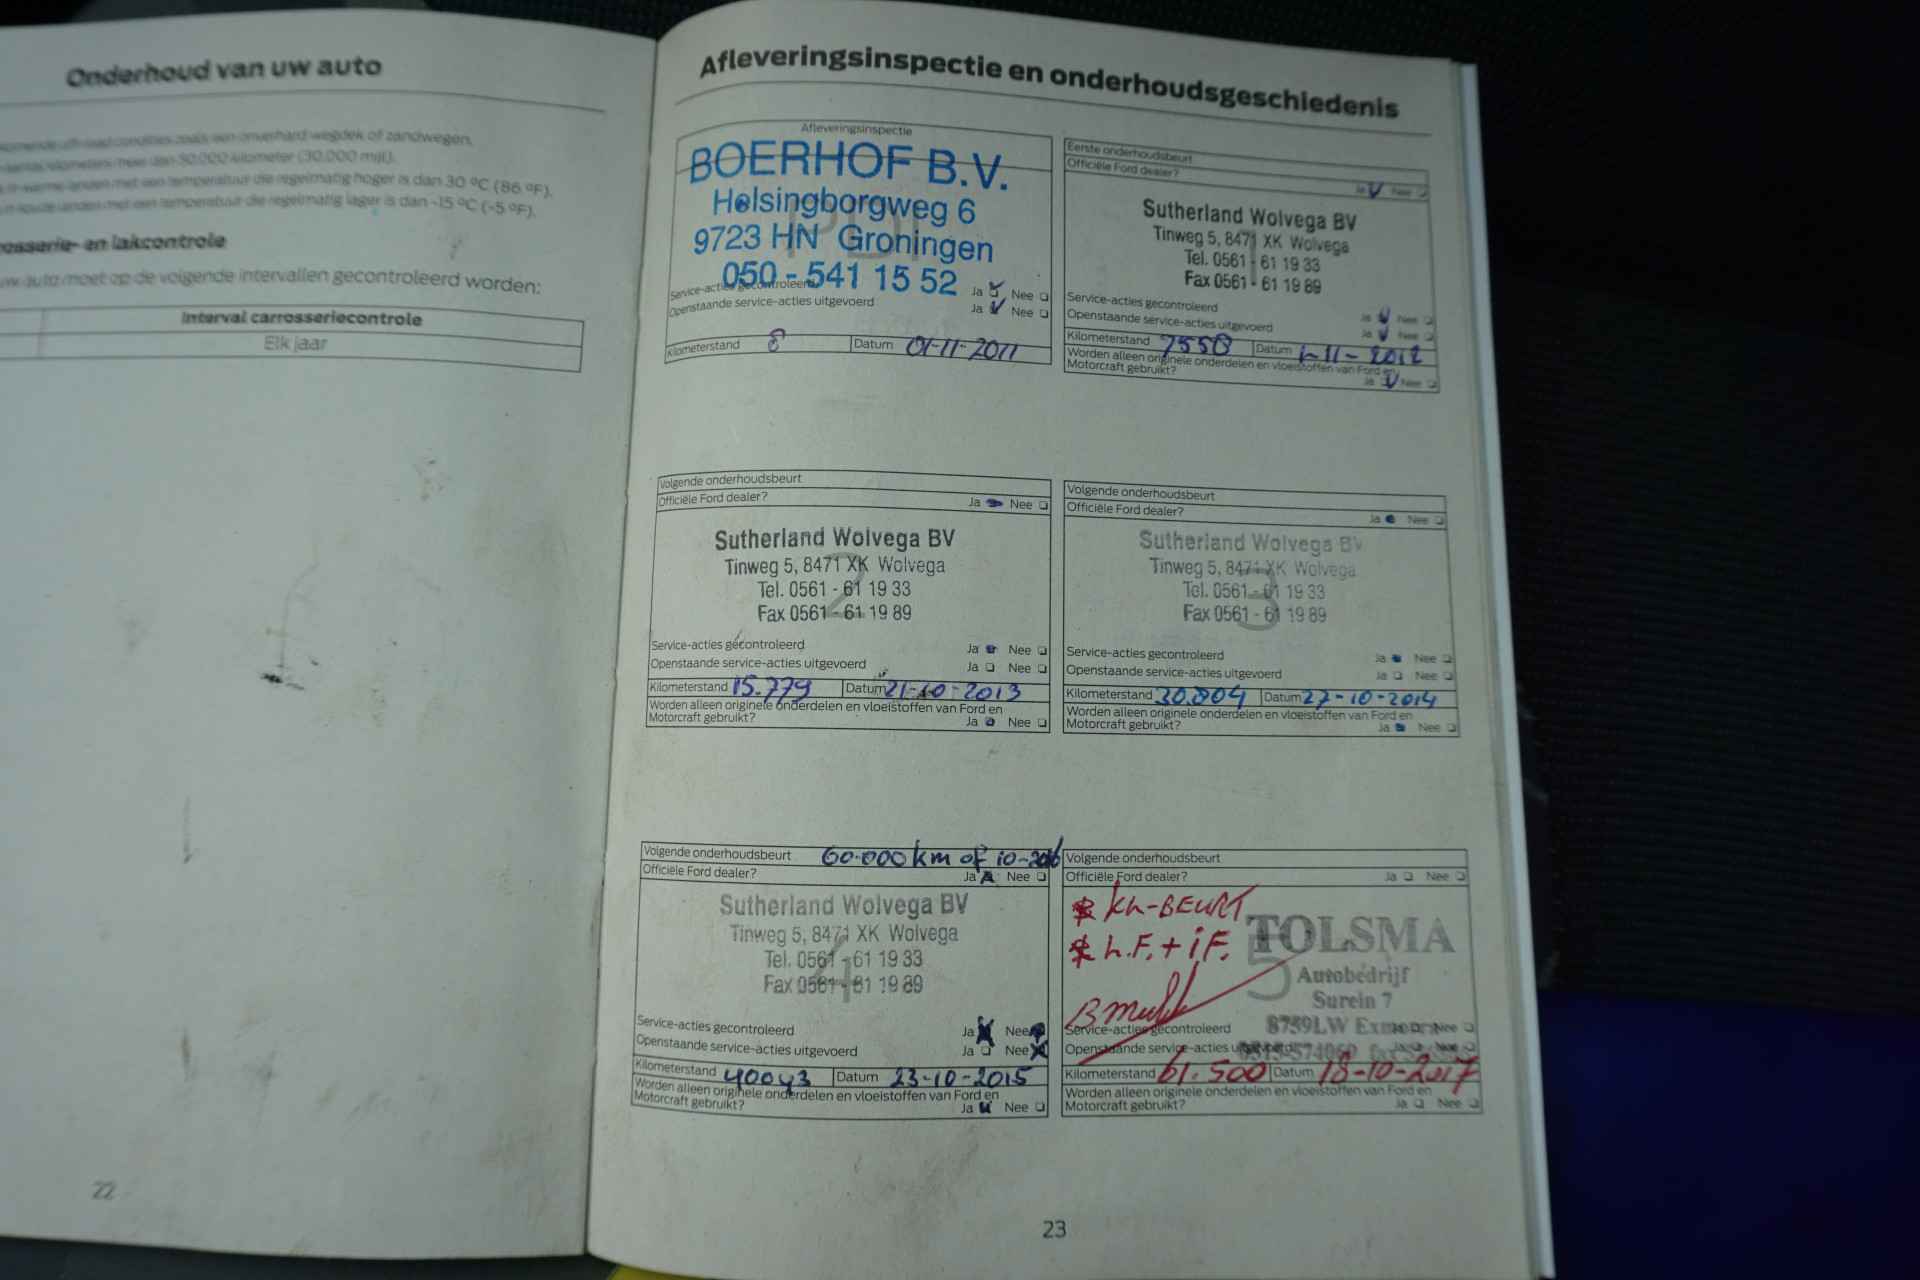 Onderhoud van uw auto
een onverhard wegdek of zandwegen.
dan 50.000 kilometer (30.000 mijl).
landen met een temperatuur die regelmatig hoger is dan 30 °C (86 °F).
landen met een temperatuur die regelmatig lager is dan -15 °C (-5 °F).
osserie- en lakcontrole
uw auto moet op de volgende intervallen gecontroleerd worden:
Interval carrosseriecontrole
Elk jaar
22
Afleveringsinspectie en onderhoudsgeschiedenis
Afleveringsinspectie
BOERHOF B.V.
Helsingborgweg 6
9723 HN Groningen
050 - 541 15 52
Service-acties gecontroleerd Ja Nee
Openstaande service-acties uitgevoerd Ja Nee
Kilometerstand 8 Datum 01-11-2011
Eerste onderhoudsbeurt
Officiële Ford dealer? Ja Nee
Sutherland Wolvega BV
Tinweg 5, 8471 XK Wolvega
Tel. 0561 - 61 19 33
Fax 0561 - 61 19 89
Service-acties gecontroleerd Ja Nee
Openstaande service-acties uitgevoerd Ja Nee
Kilometerstand 7558 Datum 1-11-2012
Worden alleen originele onderdelen en vloeistoffen van Ford en
Motorcraft gebruikt? Ja Nee
Volgende onderhoudsbeurt
Officiële Ford dealer? Ja Nee
2
Sutherland Wolvega BV
Tinweg 5, 8471 XK Wolvega
Tel. 0561 - 61 19 33
Fax 0561 - 61 19 89
Service-acties gecontroleerd Ja Nee
Openstaande service-acties uitgevoerd Ja Nee
Kilometerstand 15.779 Datum 21-10-2013
Worden alleen originele onderdelen en vloeistoffen van Ford en
Motorcraft gebruikt? Ja Nee
Volgende onderhoudsbeurt
Officiële Ford dealer? Ja Nee
3
Sutherland Wolvega BV
Tinweg 5, 8471 XK Wolvega
Tel. 0561 - 61 19 33
Fax 0561 - 61 19 89
Service-acties gecontroleerd Ja Nee
Openstaande service-acties uitgevoerd Ja Nee
Kilometerstand 30.804 Datum 27-10-2014
Worden alleen originele onderdelen en vloeistoffen van Ford en
Motorcraft gebruikt? Ja Nee
Volgende onderhoudsbeurt 60.000 km of 10-2016
Officiële Ford dealer? Ja Nee
4
Sutherland Wolvega BV
Tinweg 5, 8471 XK Wolvega
Tel. 0561 - 61 19 33
Fax 0561 - 61 19 89
Service-acties gecontroleerd Ja Nee
Openstaande service-acties uitgevoerd Ja Nee
Kilometerstand 40043 Datum 23-10-2015
Worden alleen originele onderdelen en vloeistoffen van Ford en
Motorcraft gebruikt? Ja Nee
Volgende onderhoudsbeurt
Officiële Ford dealer? Ja Nee
5
* Kh-BEURT
* L.F. + i F.
TOLSMA
Autobedrijf
Surein 7
8759LW
Service-acties gecontroleerd Nee
Openstaande service-acties
Kilometerstand 61.500 Datum 18-10-2017
Worden alleen originele onderdelen en vloeistoffen van Ford en
Motorcraft gebruikt? Ja Nee
23